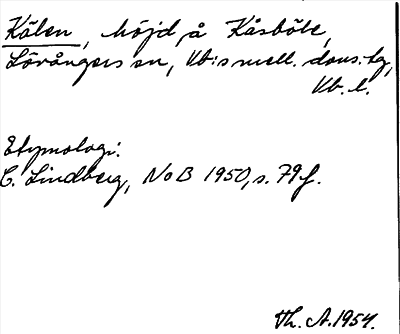 Kälen, höjd å Kåsböle,
Lövångers sn, Vb:s mell. doms:tg,
Vb. l.
Etymologi:
C. Lindberg, NoB 1950, s. 79 f.
Th. A. 1954.